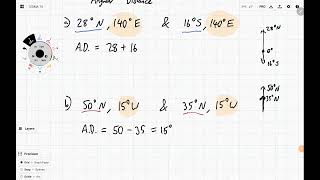 Angular Distance
a) 28°N, 140°E & 16°S, 140°E
28°N
A.D. = 28 + 16
0°
16°S
b) 50°N, 15°U & 35°N, 15°U
50°N
35°N
A.D. = 50 - 35 = 15°
Layers
Precision